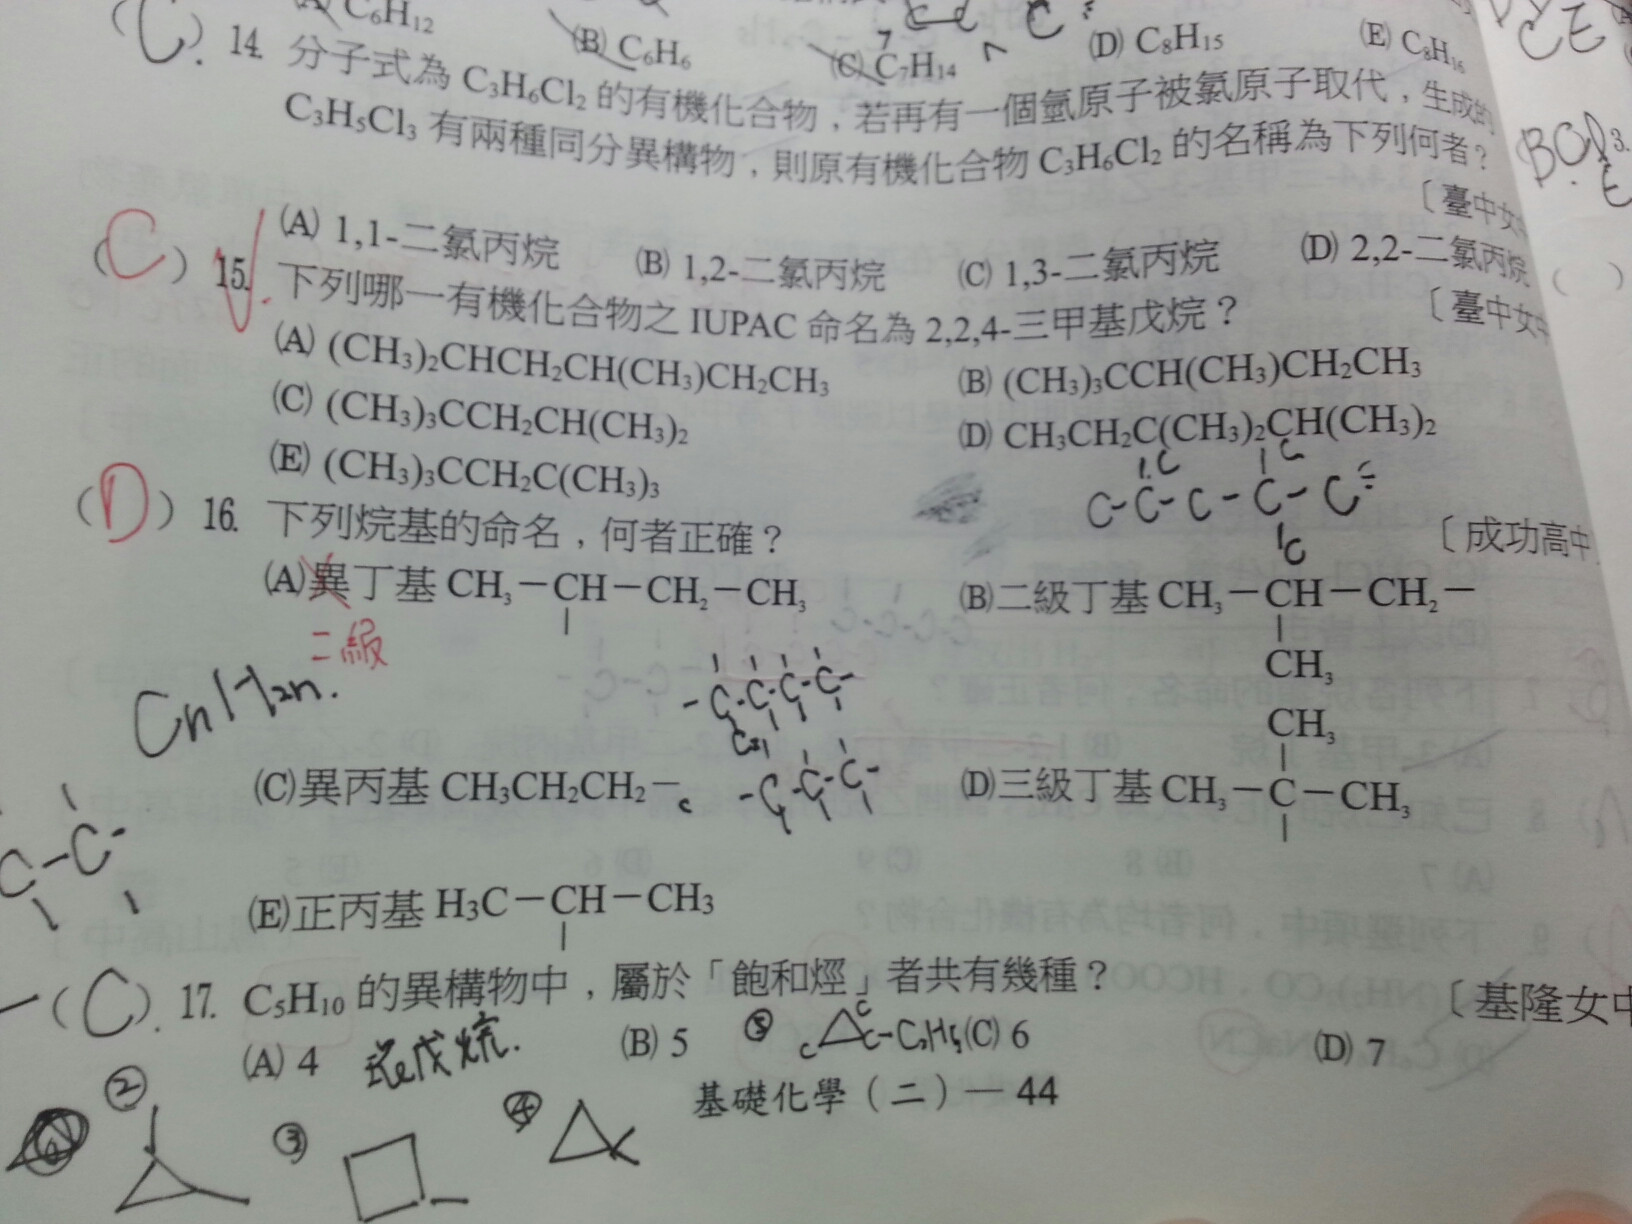 (A) C₆H₁₂ (B) C₆H₆ (C) C₇H₁₄ (D) C₈H₁₅ (E) C₈H₁₆
(C). 14. 分子式為 C₃H₆Cl₂ 的有機化合物，若再有一個氫原子被氯原子取代，生成的
C₃H₅Cl₃ 有兩種同分異構物，則原有機化合物 C₃H₆Cl₂ 的名稱為下列何者？
〔臺中女
(A) 1,1-二氯丙烷 (B) 1,2-二氯丙烷 (C) 1,3-二氯丙烷 (D) 2,2-二氯丙烷
(C) 15. 下列哪一有機化合物之 IUPAC 命名為 2,2,4-三甲基戊烷？ 〔臺中女
(A) (CH₃)₂CHCH₂CH(CH₃)CH₂CH₃ (B) (CH₃)₃CCH(CH₃)CH₂CH₃
(C) (CH₃)₃CCH₂CH(CH₃)₂ (D) CH₃CH₂C(CH₃)₂CH(CH₃)₂
(E) (CH₃)₃CCH₂C(CH₃)₃
C-C-C-C-C
(D) 16. 下列烷基的命名，何者正確？ 〔成功高中
(A)異丁基 CH₃－CH－CH₂－CH₃ (B)二級丁基 CH₃－CH－CH₂－
二級
CH₃
CnH2n.
CH₃
(C)異丙基 CH₃CH₂CH₂－ (D)三級丁基 CH₃－C－CH₃
C-C
(E)正丙基 H₃C－CH－CH₃
(C). 17. C₅H₁₀ 的異構物中，屬於「飽和烴」者共有幾種？ 〔基隆女中
(A) 4 環戊烷. (B) 5 ⑤ C-C₂H₅ (C) 6 (D) 7
基礎化學（二）— 44
② ③ ④